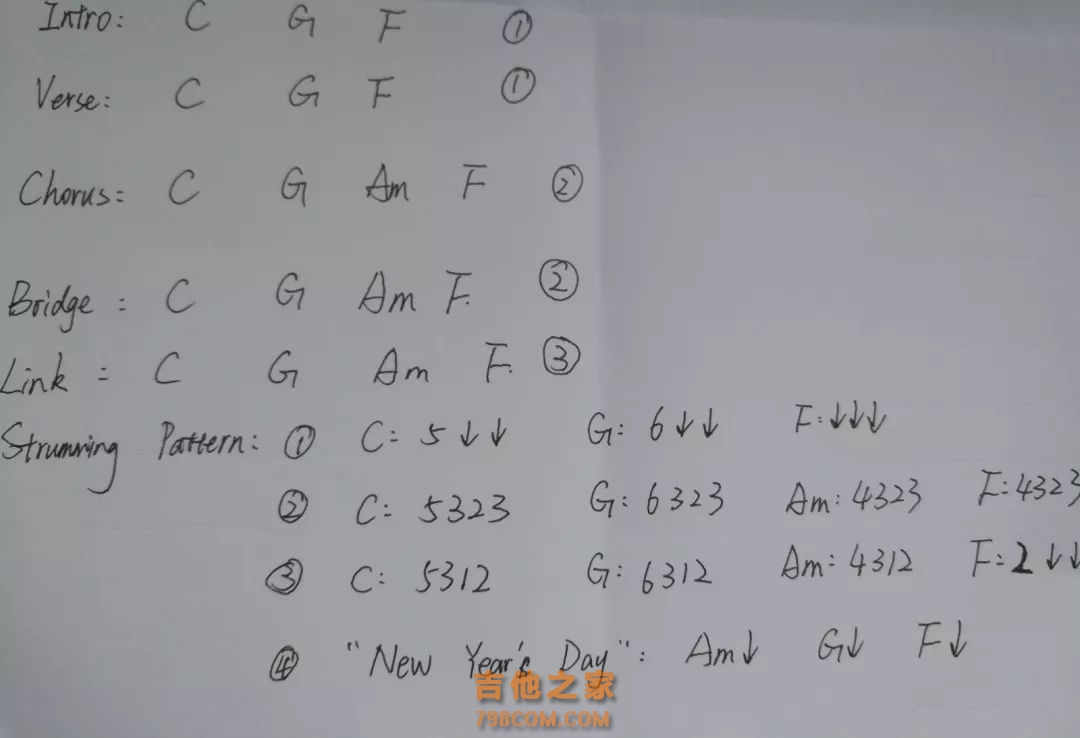 Intro: C G F ①
Verse: C G F ①
Chorus: C G Am F ②
Bridge: C G Am F. ②
Link: C G Am F. ③
Strumming Pattern: ① C: 5↓↓ G: 6↓↓ F:↓↓↓
② C: 5323 G: 6323 Am: 4323 F: 4323
③ C: 5312 G: 6312 Am: 4312 F: 2↓↓
④ "New Year's Day": Am↓ G↓ F↓
吉他之家
798COM.COM